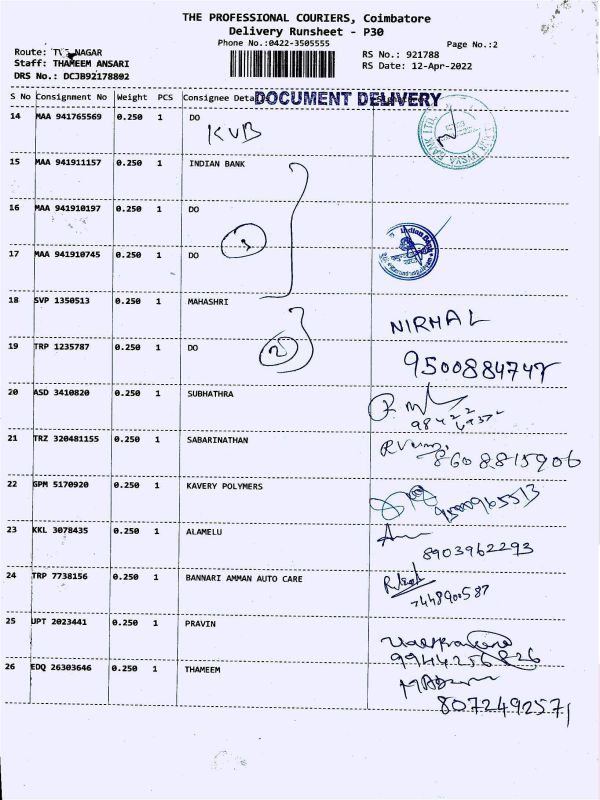 THE PROFESSIONAL COURIERS, Coimbatore
Delivery Runsheet - P30
Phone No.:0422-3505555
Page No.:2
Route: TVS NAGAR
RS No.: 921788
Staff: THAMEEM ANSARI
RS Date: 12-Apr-2022
DRS No.: DCJB92178802
S No Consignment No Weight PCS Consignee Deta DOCUMENT DELIVERY
14 MAA 941765569 0.250 1 DO
KVB
15 MAA 941911157 0.250 1 INDIAN BANK
16 MAA 941910197 0.250 1
3
17 MAA 941910745 0.250 1 DO
Indian Bank
18 SVP 1350513 0.250 1 MAHASHRI
NIRMAL
19 TRP 1235787 0.250 1 DO
2
9500884747
20 ASD 3410820 0.250 1 SUBHATHRA
21 TRZ 320481155 0.250 1 SABARINATHAN
8608815906
22 GPM 5170920 0.250 1 KAVERY POLYMERS
23 KKL 3078435 0.250 1 ALAMELU
8903962293
24 TRP 7738156 0.250 1 BANNARI AMMAN AUTO CARE
7448900587
25 UPT 2023441 0.250 1 PRAVIN
9944256826
26 EDQ 26303646 0.250 1 THAMEEM
8072492571